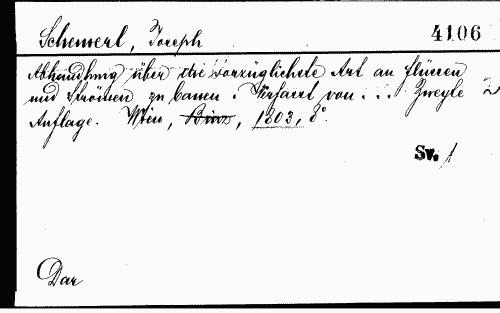 Schemerl, Joseph 4106
Abhandlung über die vorzüglichste Art an Flüssen
und Strömen zu bauen. Verfasst von ... Zweyte
Auflage. Wien, Binz, 1803, 8°.
Sv. 1
Dar